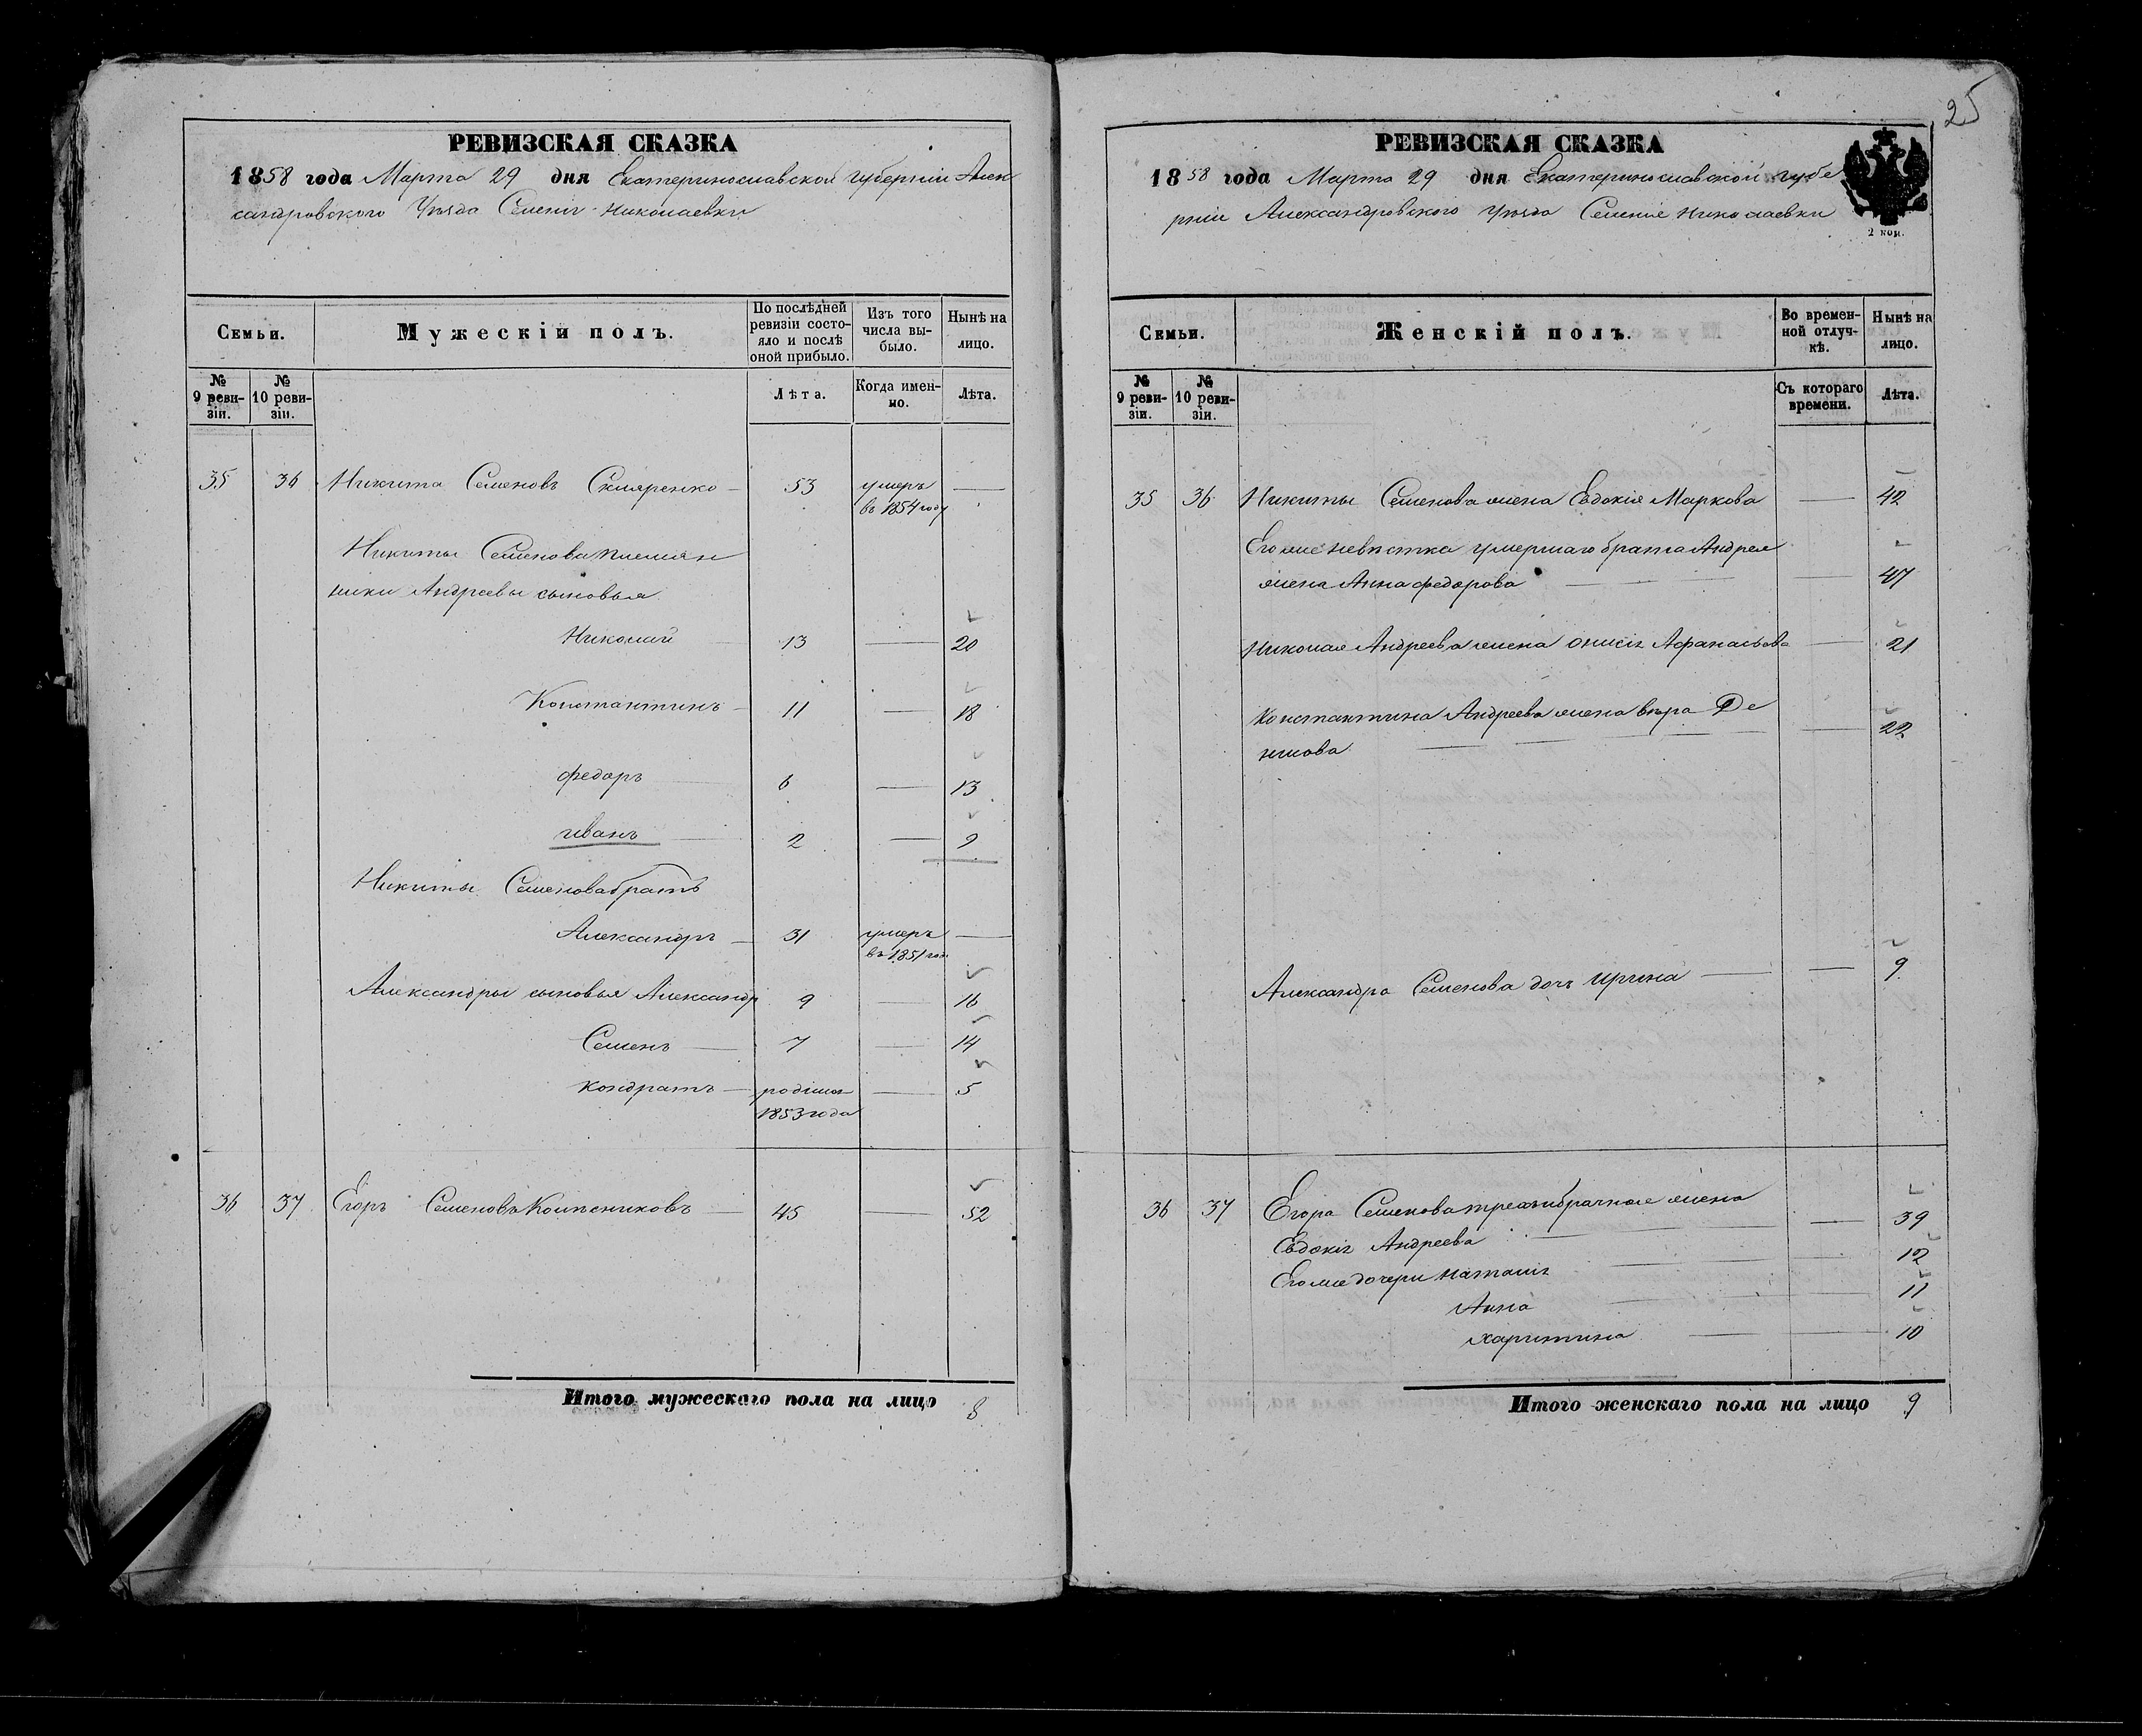 РЕВИЗСКАЯ СКАЗКА
1858 года Марта 29 дня Екатеринославской губерніи Алек
сандровского Уезда Селенія Николаевки
Семьи.
Мужескій полъ.
По послѣдней ревизіи состояло и послѣ оной прибыло.
Изъ того числа выбыло.
Нынѣ на лицо.
№ 9 ревизіи.
№ 10 ревизіи.
Лѣта.
Когда именно.
Лѣта.
35 36 Никита Семеновъ Скляренко — 53 умеръ —
въ 1854 году
Никиты Семенова племян
ники Андреевы сыновья
Николай 13 — 20
Константинъ — 11 — 18
Федоръ 6 — 13
Иванъ 2 — 9
Никиты Семенова братъ
Александръ — 31 умеръ —
въ 1851 год
Александры сыновья Александр 9 — 16
Семенъ — 7 — 14
Кондратъ — родился — 5
1853 года
36 37 Егоръ Семеновъ — 45 — 52
Итого мужескаго пола на лицо 8
25
РЕВИЗСКАЯ СКАЗКА
1858 года Марта 29 дня Екатеринославской губе
рніи Александровского Уезда Селенія Николаевки
2 коп.
Семьи.
Женскій полъ.
Во временной отлучкѣ.
Нынѣ на лицо.
№ 9 ревизіи.
№ 10 ревизіи.
Съ котораго времени.
Лѣта.
35 36 Никиты Семенова жена Евдокія Маркова — 42
Его же невѣстка умершаго брата Андрея
жена Анна Федорова — 47
Николая Андреева жена Онисія Афанасьова — 21
Константина Андреева жена Вѣра Де
нисова — 22
Александра Семенова дочь Ирина — — 9
36 37 Егора Семенова жена
Евдокія Андреева — 39
Его же дочери Наталія 12
Анна 11
Харитина — 10
Итого женскаго пола на лицо 9